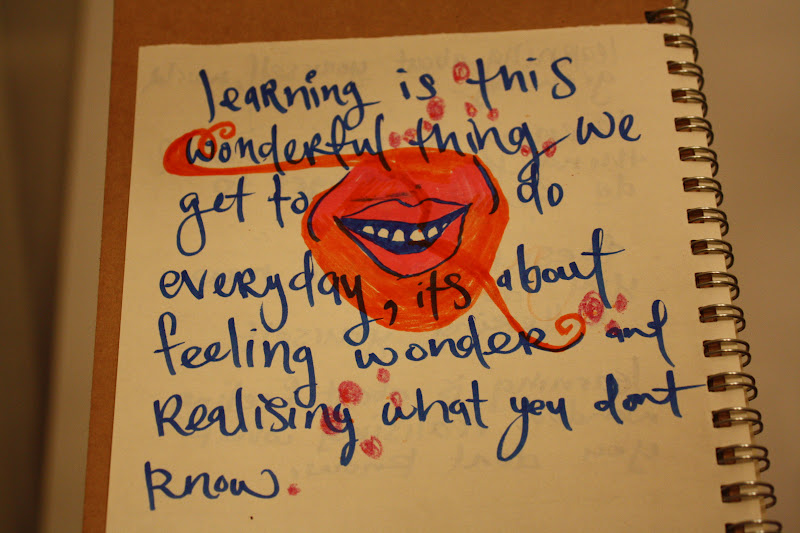 learning is this
wonderful thing we
get to do
everyday, its about
feeling wonder and
Realising what you dont
know.